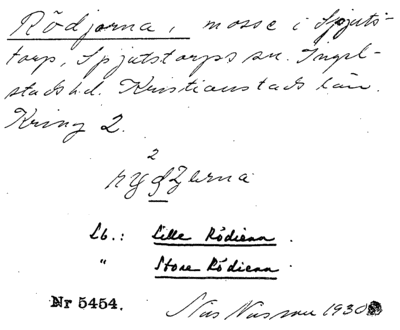 Rödjorna, mosse i Spjuts-
torp, Spjutstorps sn. Ingel-
stads hd. Kristianstads län.
Kring 2.
2
Lb.: Lille Rödiena.
" Store Rödiena.
Nr 5454.
Nils 1930